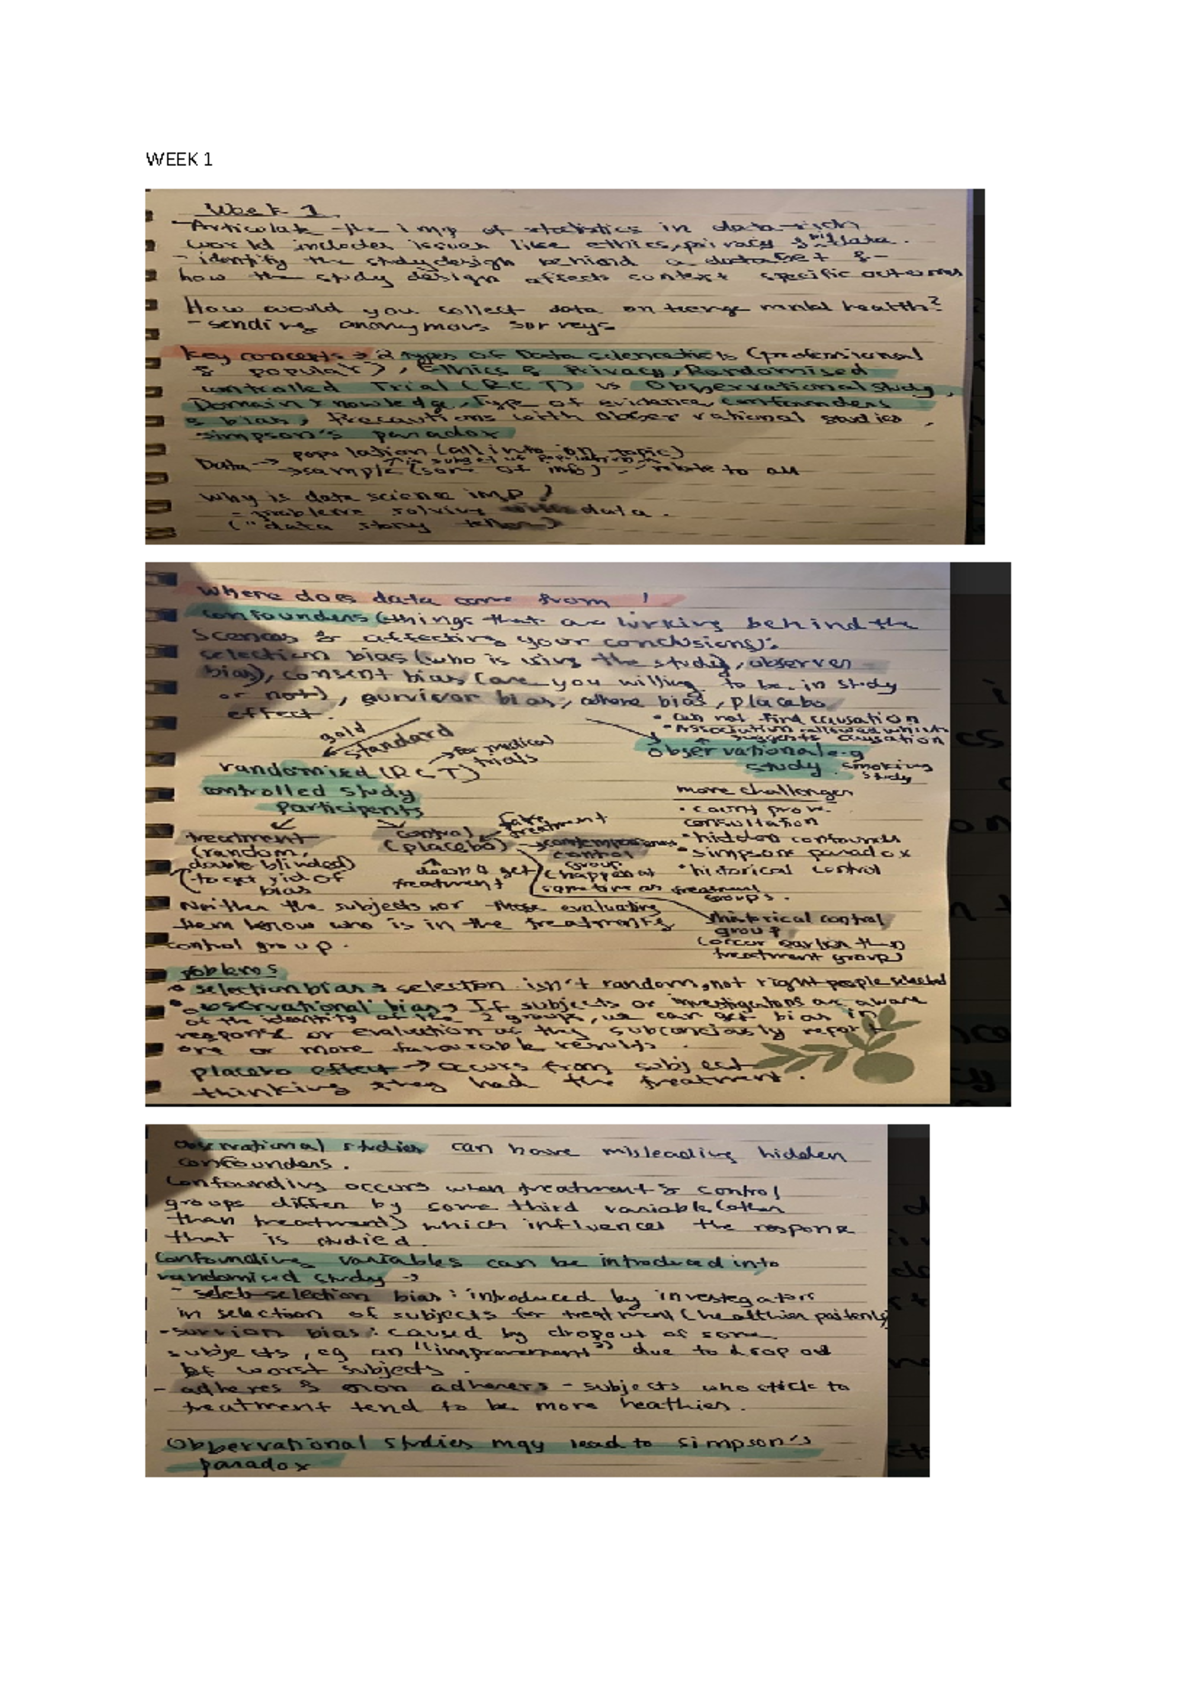 WEEK 1
Week 1.
- Articulate the imp of statistics in data-rich
world includes issues like ethics, privacy & data.
- identify the study design behind a dataset &
how the study design affects context specific outcomes
How would you collect data on teenage mental health?
- sending anonymous surveys
Key concepts → 2 types of Data (professional
& popular), Ethics & Privacy, Randomised
controlled Trial (RCT) vs Observational study,
Domain knowledge, Type of evidence, confounders
& bias, Precautions with observational studies,
simpson's paradox
Data → population (all info on topic)
→ sample (some of info) - relate to all
Why is data science imp?
- problem solving data.
("data story teller")
Where does data come from!
confounders (things that are lurking behind the
scences & affecting your conclusions):
selection bias (who is in the study), observer
bias), consent bias (are you willing to be in study
or not), survivor bias, adhere bias, placebo
effect.
• can not find causation
suggests causation
gold
standard
→ for medical
trials
Observational e.g
study smoking
study
randomised (RCT)
controlled study
Participents
more challenges
• hidden confounds
• simpsons paradox
• historical control
treatment
(random,
double blinded)
(to get rid of
bias
control
(placebo)
fake
treatment
doesn't get
treatment
contemporaneous
control
group
(happen at
same time as treatment
groups.
Neither the subjects nor those evaluating
them know who is in the treatment/
control group.
historical control
group
(occur earlier than
treatment group)
problems
• selection bias → selection isn't random, not right people selected
• observational bias → If subjects or investigators are aware
of the identity of the 2 groups, we can get bias in
response or evaluation as they subconciously report
one or more favourable results.
placebo effect → occurs from subject
thinking they had the treatment.
observational studies can have misleading hidden
confounders.
Confounding occurs when treatment & control
groups differ by some third variable (other
than treatment) which influences the response
that is studied.
Confounding variables can be introduced into
randomised study →
- selection bias: introduced by investegators
in selection of subjects for treatment (healthier
bias: caused by dropout of some
subjects, eg an "improvement" due to drop out
of worst subjects.
- adheres & non adherers - subjects who stick to
treatment tend to be more heathier.
Observational studies may lead to simpson's
paradox